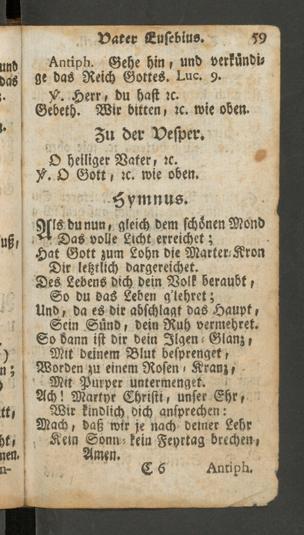 Vater Eusebius. 59
Antiph. Gehe hin, und verkündi-
ge das Reich Gottes. Luc. 9.
℣. Herr, du hast ꝛc.
Gebeth. Wir bitten, ꝛc. wie oben.
Zu der Vesper.
O heiliger Vater, ꝛc.
℣. O Gott, ꝛc. wie oben.
Hymnus.
Als du nun, gleich dem schönen Mond
Das volle Licht erreichet;
Hat Gott zum Lohn die Marter-Kron
Dir letztlich dargereichet.
Des Lebens dich dein Volk beraubt,
So du das Leben g'lehret;
Und, da es dir abschlagt das Haupt,
Sein Sünd, dein Ruh vermehret.
So dann ist dir dein Ilgen-Glanz,
Mit deinem Blut besprenget,
Worden zu einem Rosen-Kranz,
Mit Purper untermenget.
Ach! Martyr Christi, unser Ehr,
Wir kindlich dich ansprechen:
Mach, daß wir je nach deiner Lehr
Kein Sonn-kein Feyrtag brechen,
Amen.
C 6 Antiph.